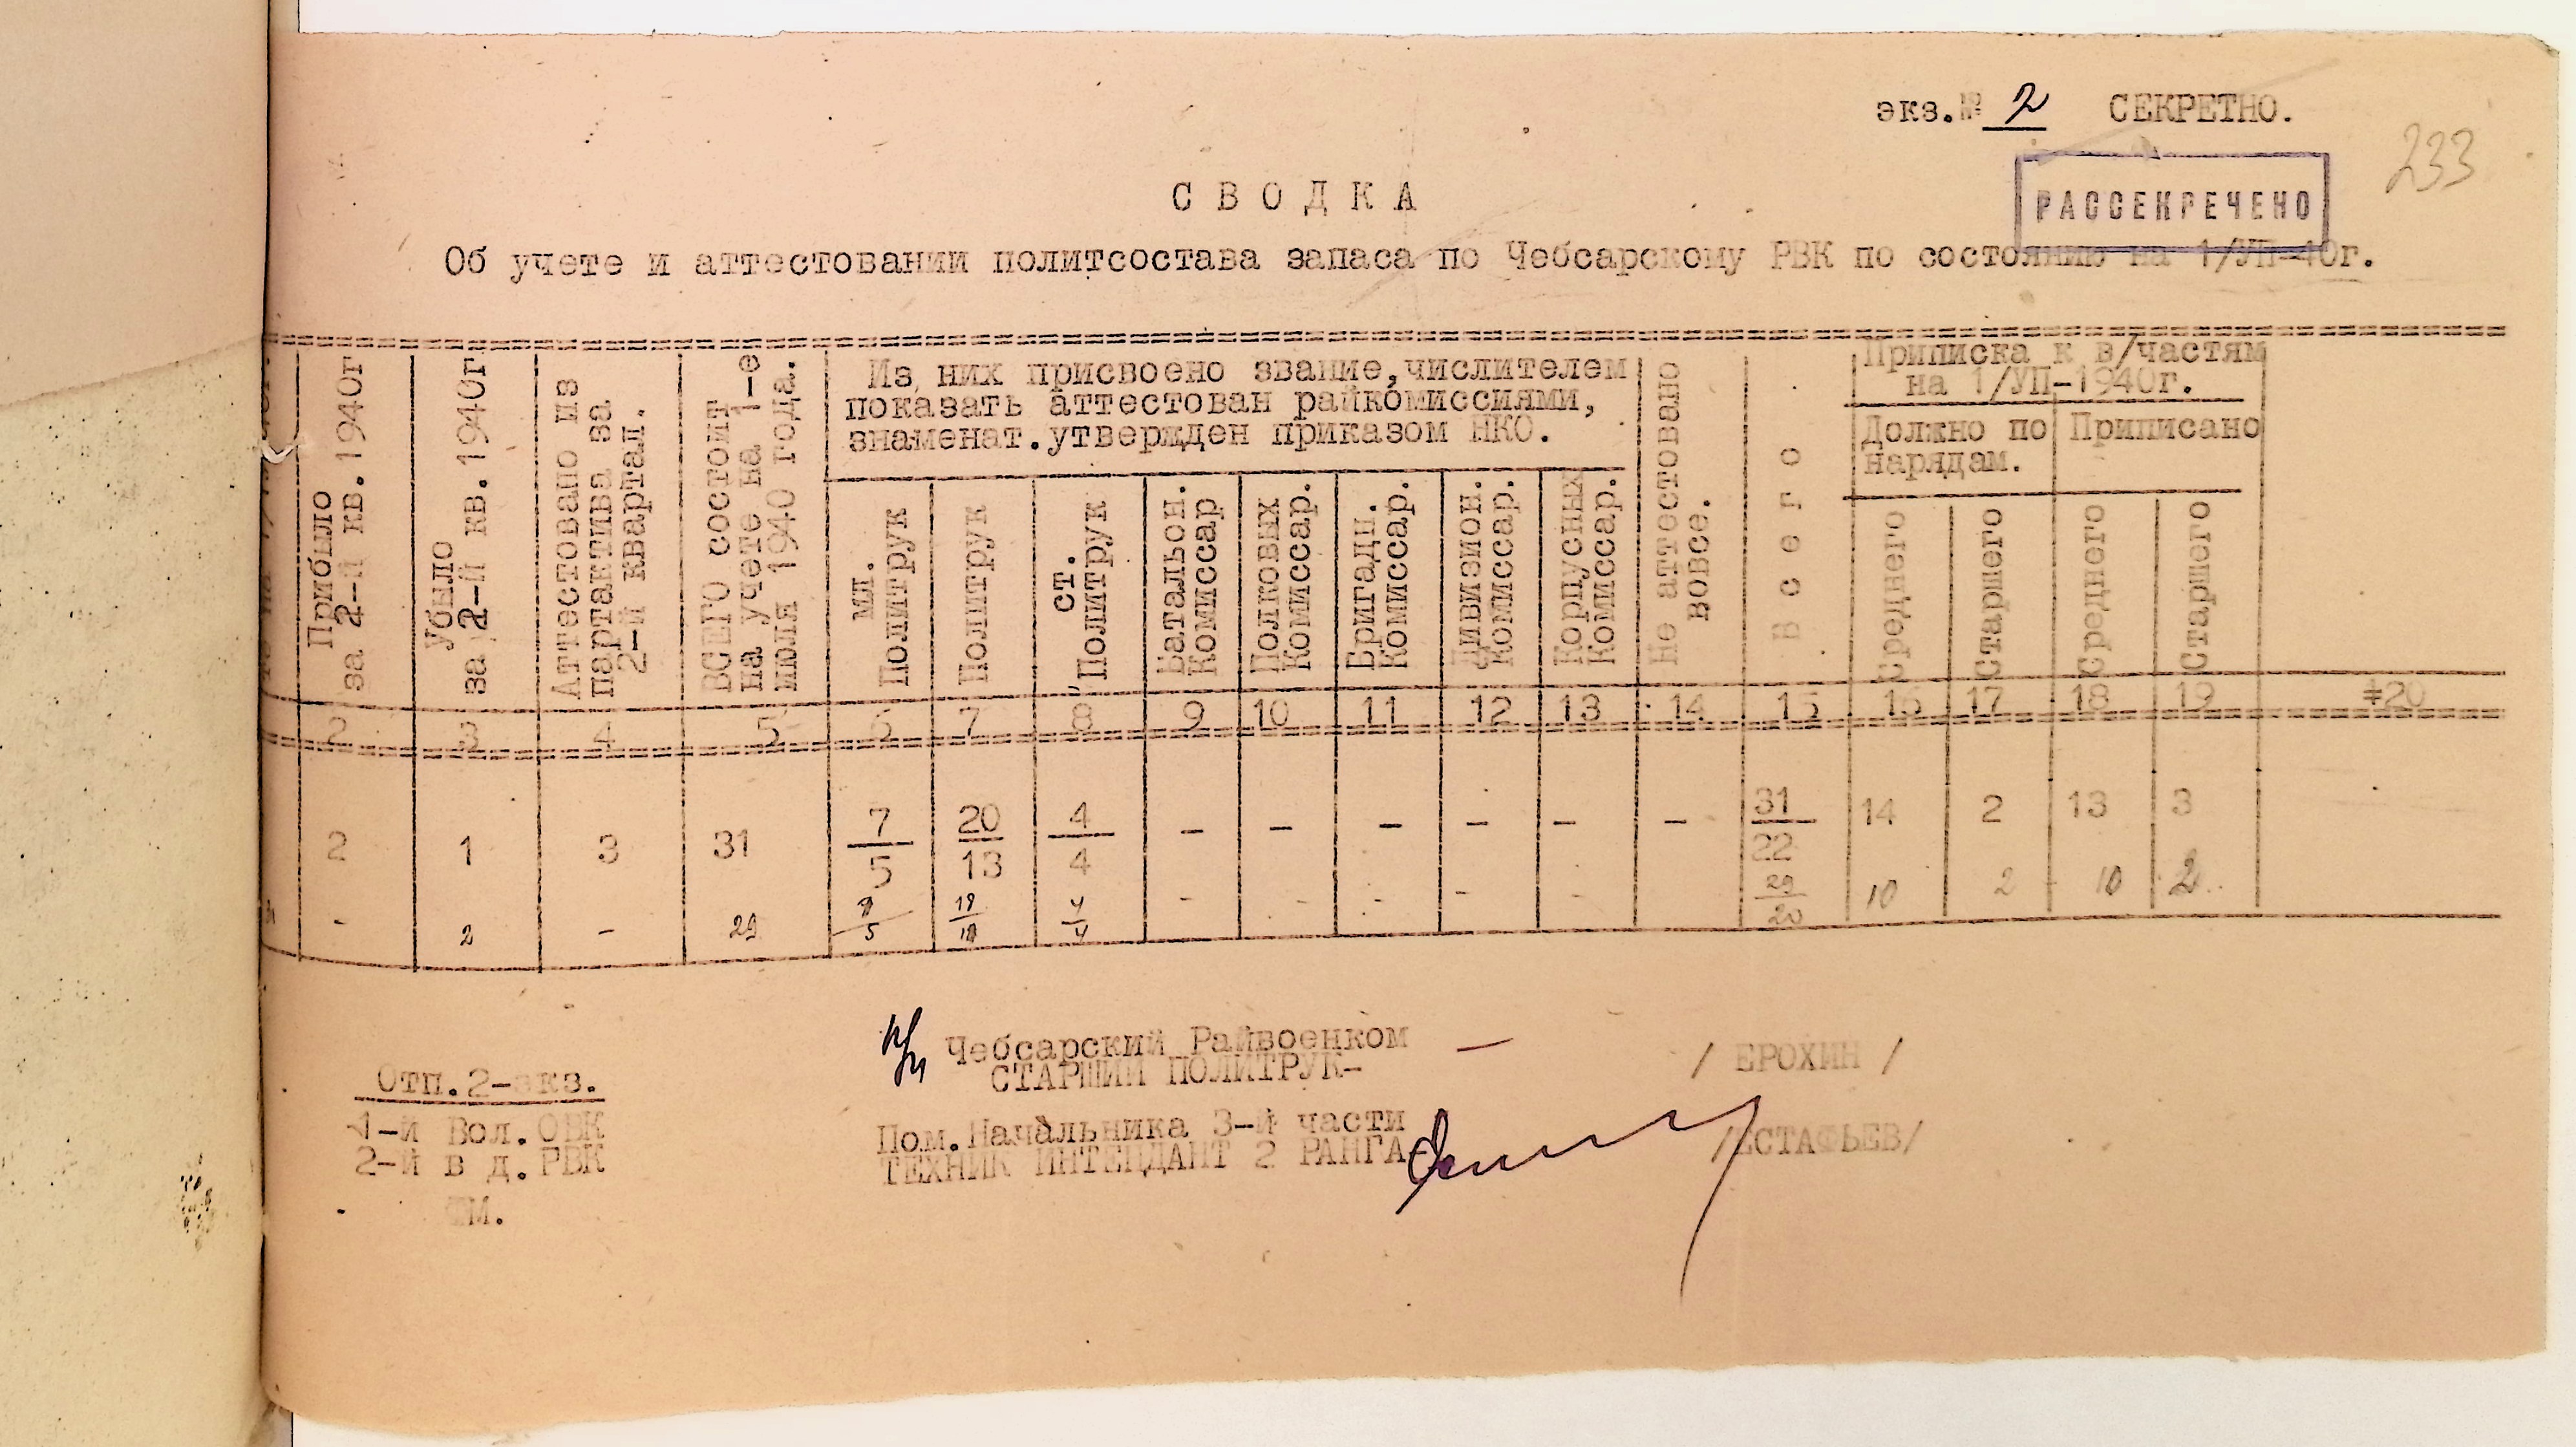 экз.№ 2 СЕКРЕТНО.
233
РАССЕКРЕЧЕНО
С В О Д К А
Об учете и аттестовании политсостава запаса по Чебсарскому РВК по состоянию на 1/УП-40г.
Прибыло
за 2-й кв.1940г
Убыло
за 2-й кв.1940г
Аттестовано из
партактива за
2-й квартал.
ВСЕГО состоит
на учете на 1-е
июля 1940 года.
Из них присвоено звание,числителем
показать аттестован райкомиссиями,
знаменат.утвержден приказом НКО.
мл.
Политрук
Политрук
ст.
Политрук
Батальон.
Комиссар
Полковых
Комиссар.
Бригадн.
Комиссар.
Дивизион.
Комиссар.
Корпусных
Комиссар.
Не аттестовано
вовсе.
В с е г о
Приписка к в/частям
на 1/УП-1940г.
Должно по
нарядам.
Приписано
Среднего
Старшего
Среднего
Старшего
2 3 4 5 6 7 8 9 10 11 12 13 14 15 16 17 18 19 20
2 1 3 31 7/5 20/13 4/4 - - - - - - 31/22 14 2 13 3
- 2 - 29 5 4/4 - - - - - 29/20 10 2 10 2
Чебсарский Райвоенком
СТАРШИЙ ПОЛИТРУК-
/ ЕРОХИН /
Пом.Начальника 3-й части
ТЕХНИК ИНТЕНДАНТ 2 РАНГА-
/ЕСТАФЬЕВ/
Отп.2-экз.
1-й Вол.ОВК
2-й в д.РВК